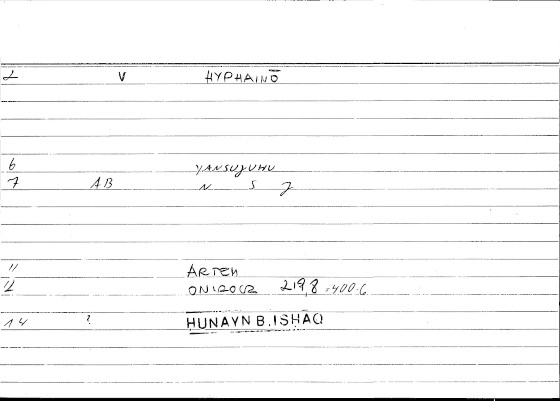 2 V HYPHAINŌ
6 YANSUǦUHU
7 AB N S J
11 ARTEM
12 ONIROCR 219,8 =400.6
14 ? HUNAYN B. ISHAQ